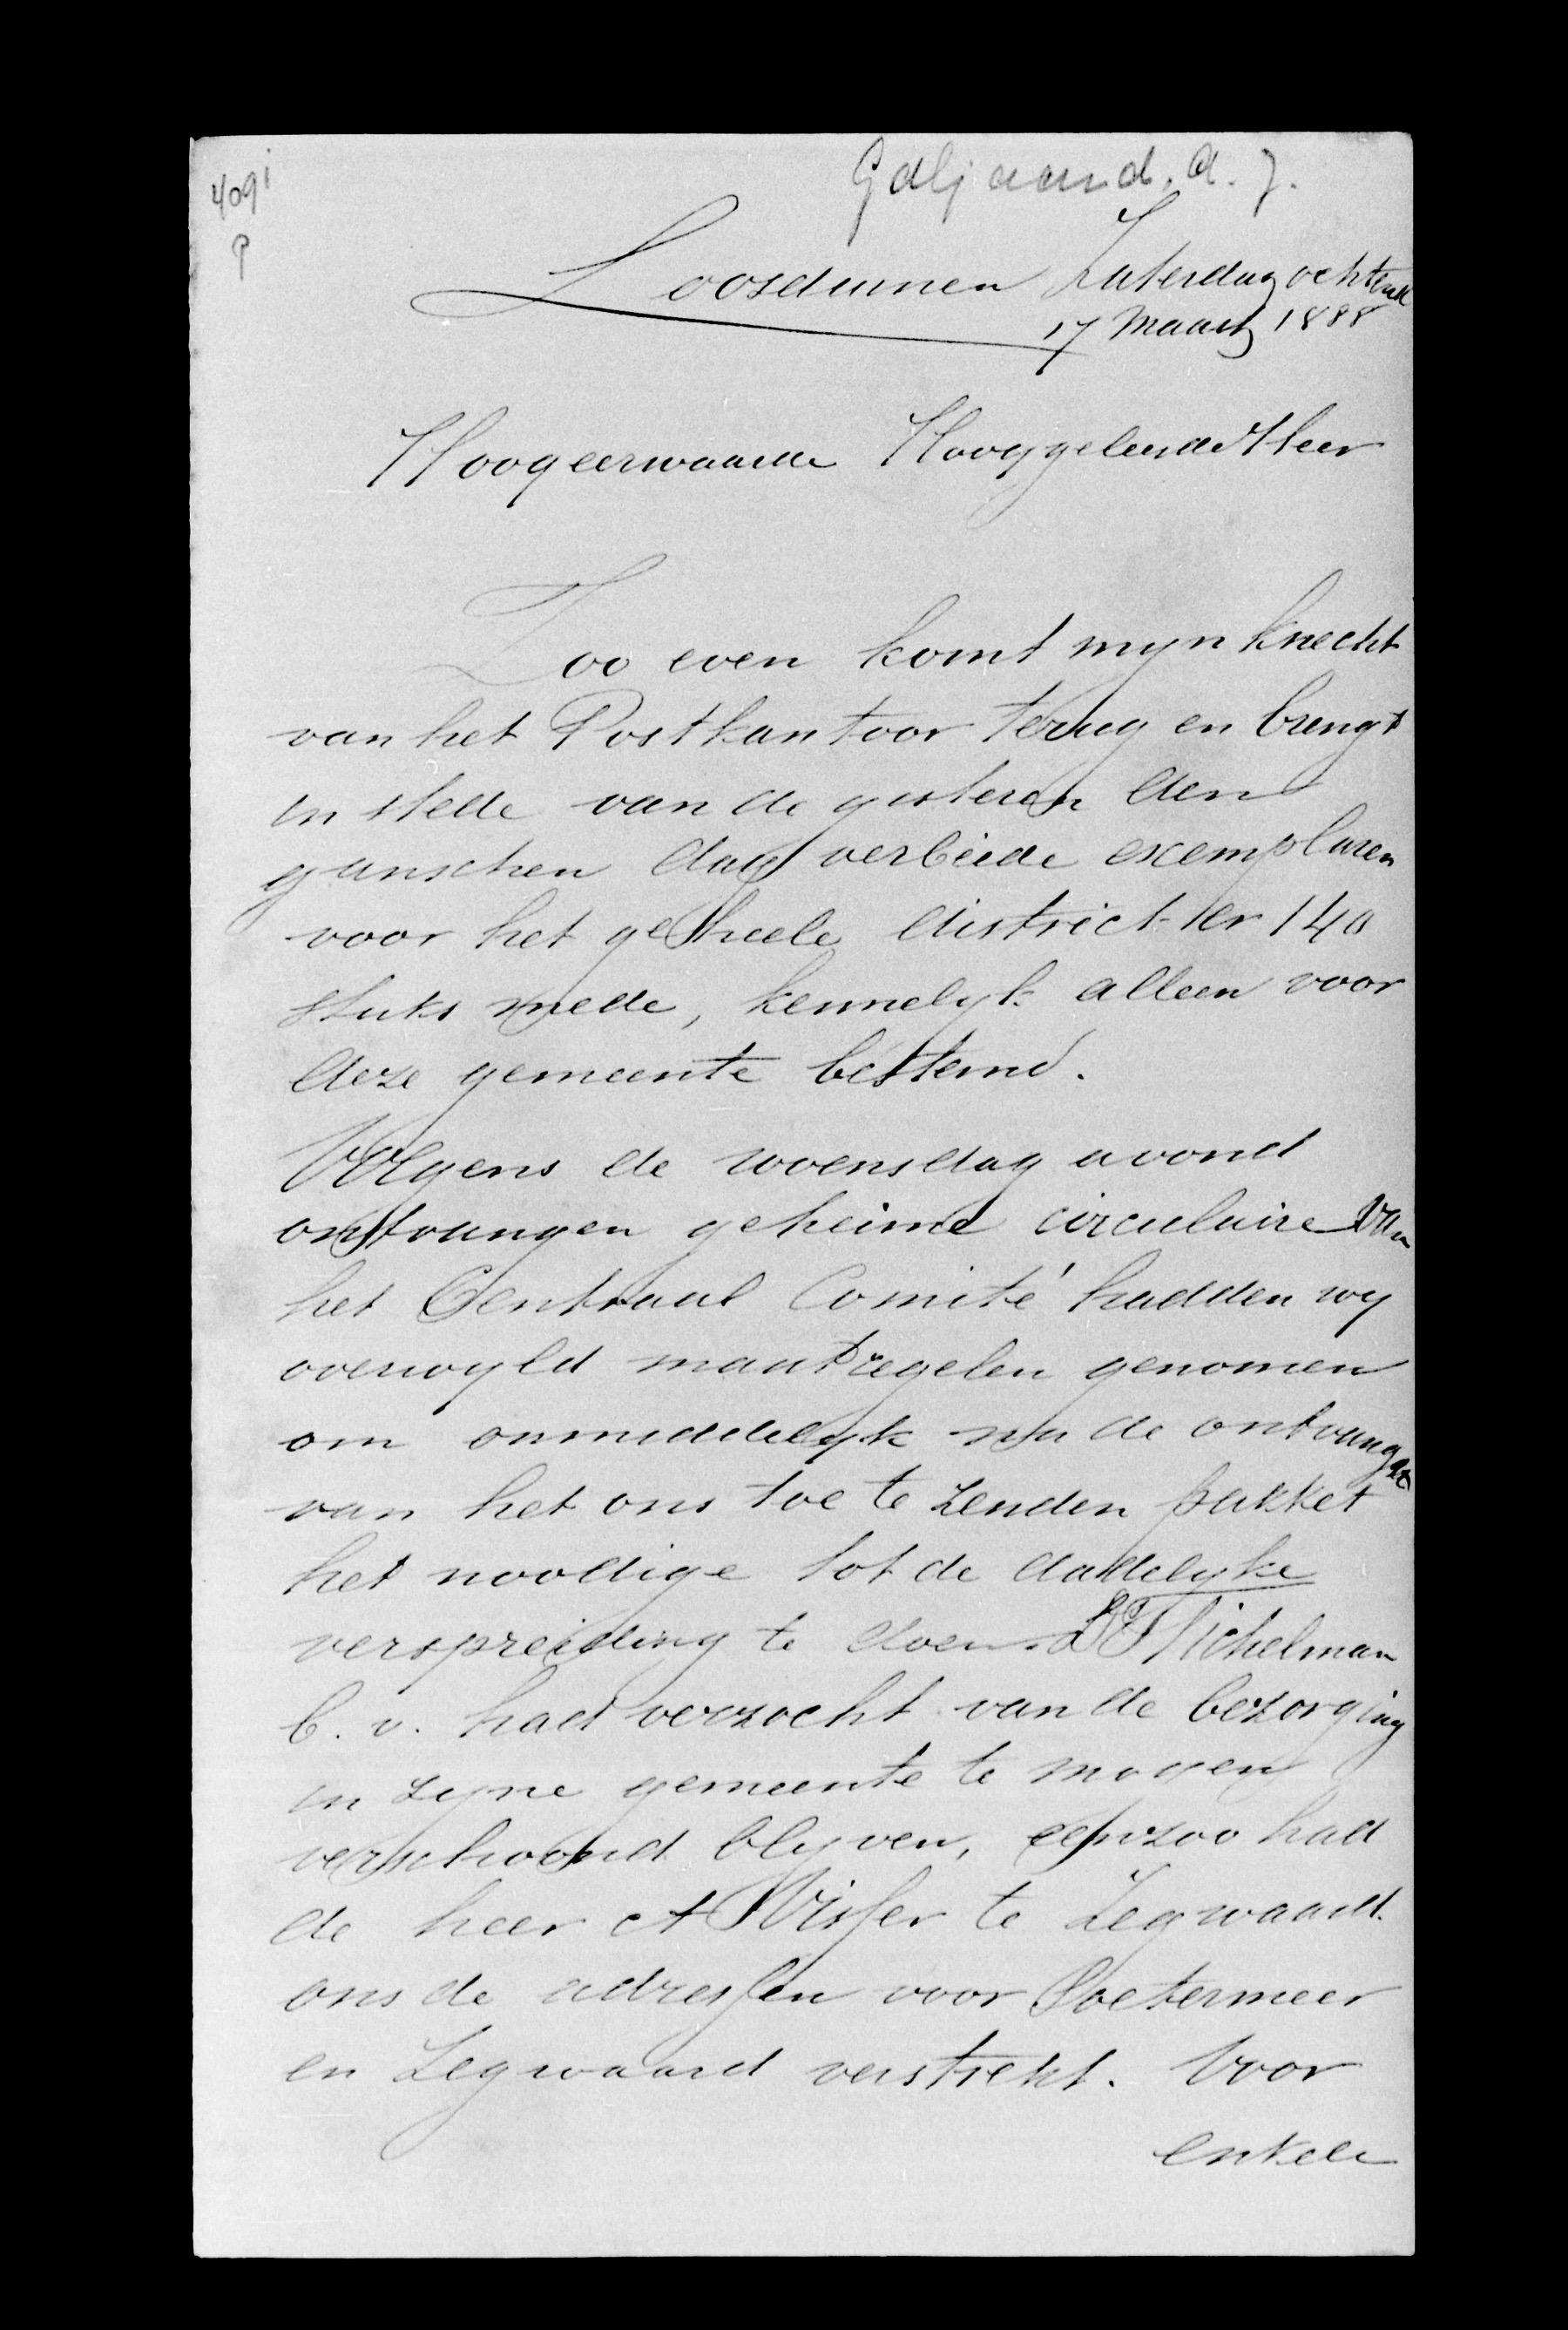 4091
P
Galjaard. A. J.
Loosduinen Zaterdag ochtend
17 Maart 1888
Hoogeerwaarde Hooggeleerde Heer
Zoo even komt myn knecht
van het Postkantoor terug en brengt
in stede van de gisteren den
ganschen dag verbeide exemplaren
voor het geheele district er 140
stuks mede, kennelyk alleen voor
deze gemeente bestemd.
Volgens de woensdag avond
ontvangen geheime circulaire van
het Centraal Comité hadden wy
overwyld maatregelen genomen
om onmiddelyk na de ontvangst
van het ons toe te zenden pakket
het noodige tot de dadelyke
verspreiding te doen. Ds
b. v. had verzocht van de bezorging
in zyne gemeente te mogen
verschoond blyven, evenzoo had
de heer A Visser te Zegwaard
ons de adressen voor Soetermeer
en Zegwaard verstrekt. Voor
enkele